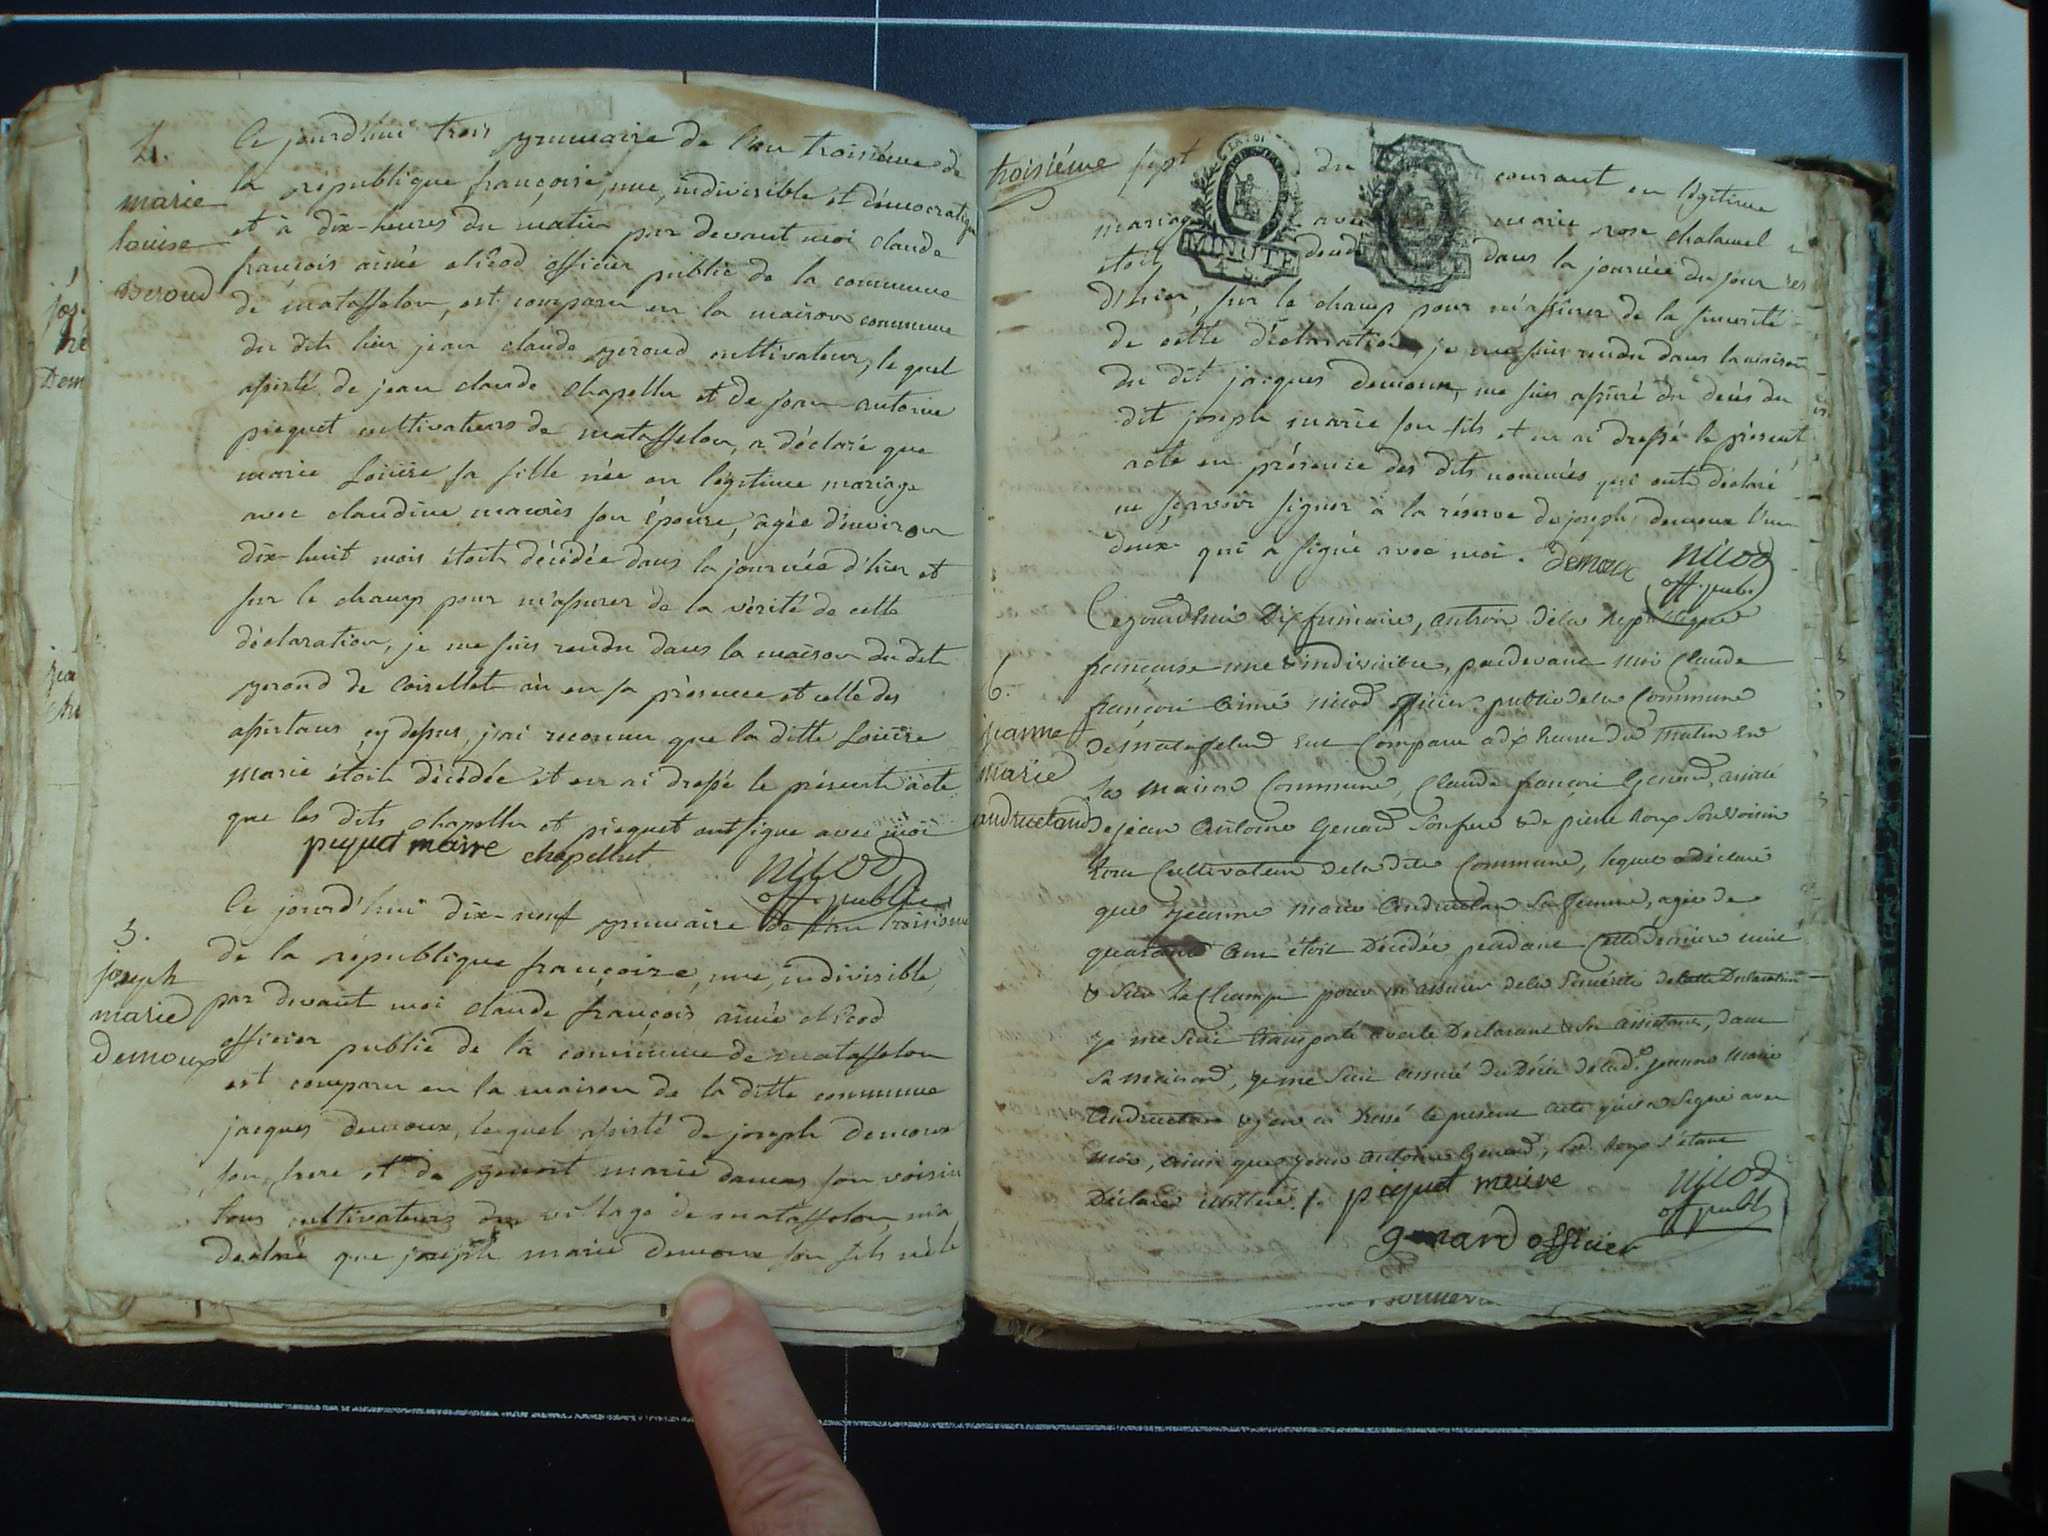 4.
marie
louise
Beroud
Ce jourd'hui trois brumaire de l'an troisième de
la republique françoise, une, indivisible et démocratique
et à dix-heures du matin par devant moi claude
françois aimé nicod officier public de la commune
de matafelon, est comparu en la maison commune
du dit lieu jean claude beroud cultivateur, le quel
assisté de jean claude chapellu et de jean antoine
piequet cultivateurs de matafelon, a déclaré que
marie louise sa fille née en légitime mariage
avec claudine son épouse, agée d'environ
dix-huit mois étoit décédée dans la journée d'hier et
sur le champ pour m'assurer de la vérité de cette
déclaration, je me suis rendu dans la maison du dit
beroud de Coisellet où en sa présence et celle des
assistans cy dessus, j'ai reconnu que la ditte Louise
marie étoit décédée et en ai dressé le présent acte
que les dits chapellu et piequet ont signe avec moi
piquet maire chapellut nicod
off. public
5.
joseph
marie
demoux
Ce jourd'hui dix-neuf brumaire de l'an troisième
de la république françoise, une, indivisible,
par devant moi claude françois aimé nicod
officier public de la commune de matafelon
est comparu en la maison de la ditte commune
jacques demoux, lequel assisté de joseph demoux
son frere et de benoit marie son voisin
tous cultivateurs du village de matafelon, m'a
declaré que joseph marie demoux son fils né le
troisième sept du courant en légitime
mariage avec marie rose chalamel
étoit décédé dans la journée du jour
d'hier, sur le champ pour m'assurer de la sincerité
de cette déclaration, je me suis rendu dans la maison
du dit jacques demoux, me suis assuré du décés du
dit joseph marie son fils et en ai dressé le présent
acte en présence des dits nommés qui ont déclaré
ne sçavoir signer à la réserve de joseph demoux l'un
deux qui a signé avec moi. demoux nicod
off. pub.
MINUTE
6.
jeanne
marie
andruetand
Cejourdhui Dix frimaire, an trois de la Republique
française une & indivisible, pardevant moi Claude
françois aimé nicod officier public de la Commune
de matafelond est Comparu a dix heures du Matin en
la maison Commune, Claude françois Genard, assisté
de jean antoine Genard son frere & de pierre Roux son voisin
tous Cultivateurs de la dite Commune, lequel a déclaré
que jeanne marie andruetan sa femme, agée de
quarante ans étoit Décédée pendant cette derniere nuit
& sur le Champ pour m'assurer de la Sincérité de cette Declaration
je me suis transporté avec le Declarant & les assistans, dans
sa maison, je me suis assuré du Décés de lad. jeanne Marie
andruetan & j'en ai dressé le present acte qu'il a signé avec
moi, ainsi que jean antoine Genard, led. Roux s'étant
Déclaré illitéré. /. piquet maire nicod
off. publ
genard officier